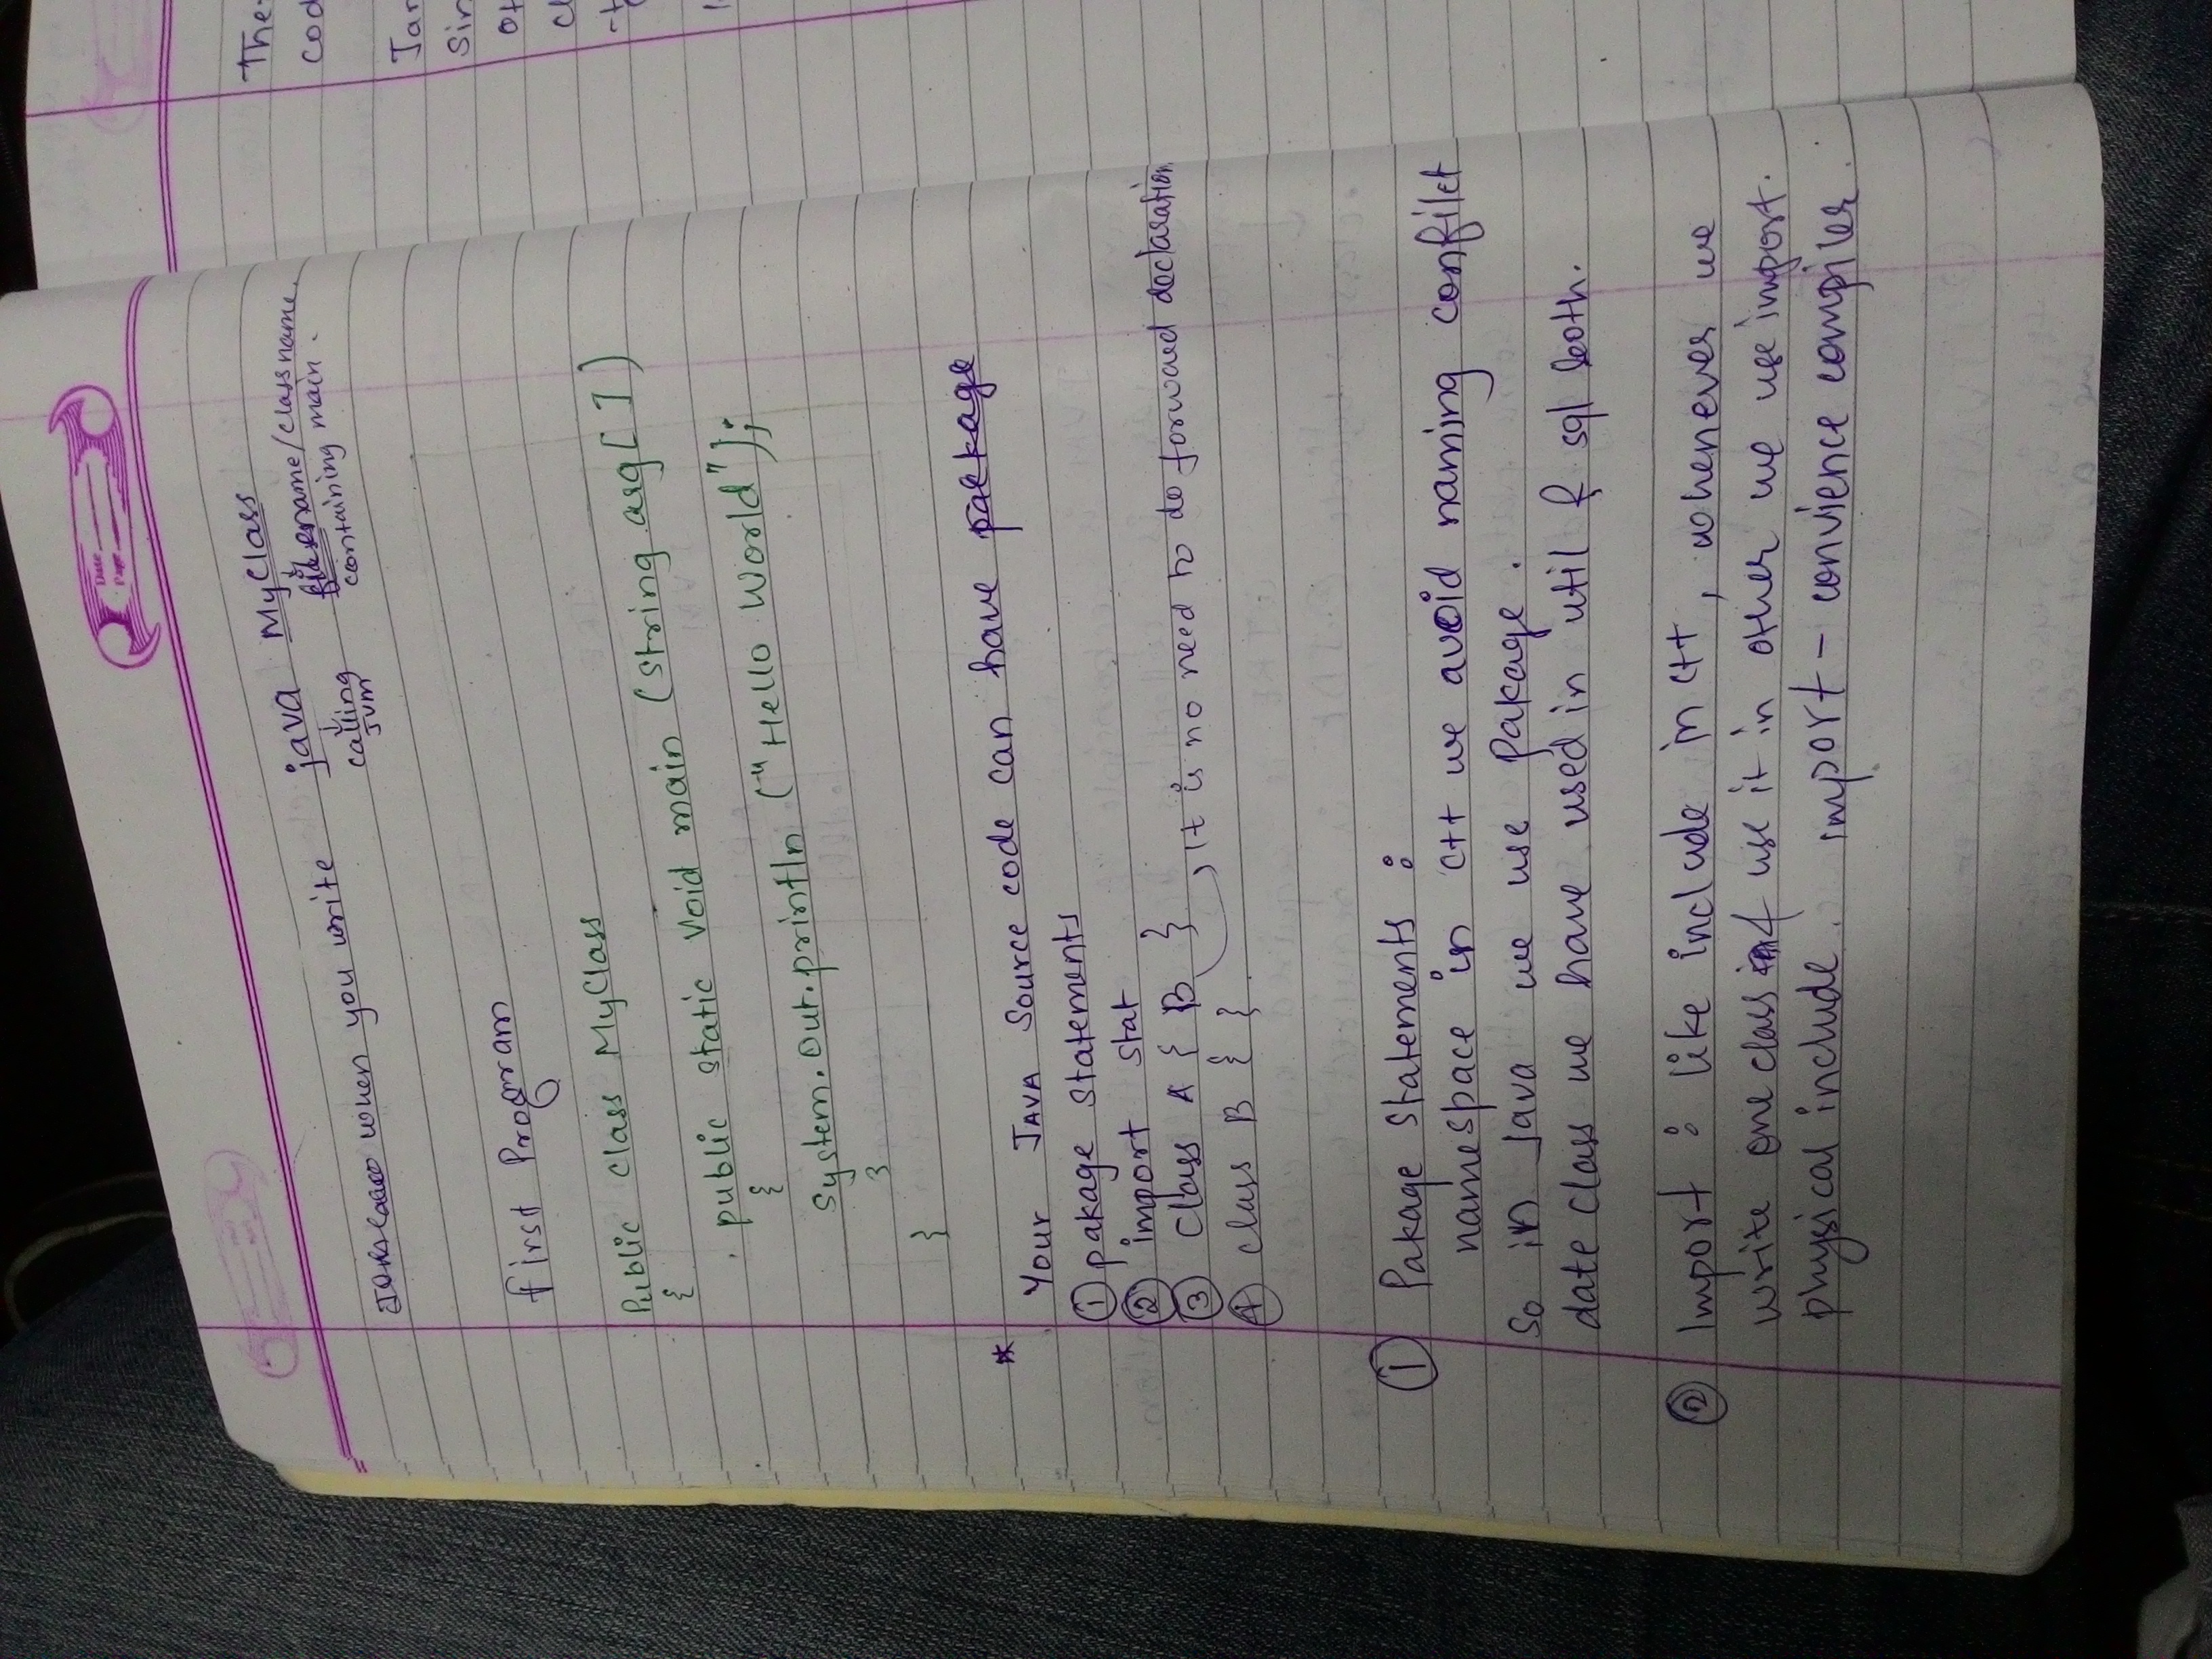 Date
Page
when you write java MyClass
calling filename/classname.
JVM containing main.
first Program
Public class MyClass
{
public static void main (string arg[])
{
System.out.println ("Hello World");
}
}
* Your JAVA Source code can have package
① pakage statements
② import stat
③ class A { B } It is no need to do forward declaration
④ class B { }
① Pakage statements :
namespace in C++ we avoid naming confilct
so in Java we use pakage.
date class we have used in util & sql both.
② Import : like include in C++, whenever we
write one class & use it in other we use import.
physical include. import - convience compiler.
The
cod
Jar
Sin
ot
cl